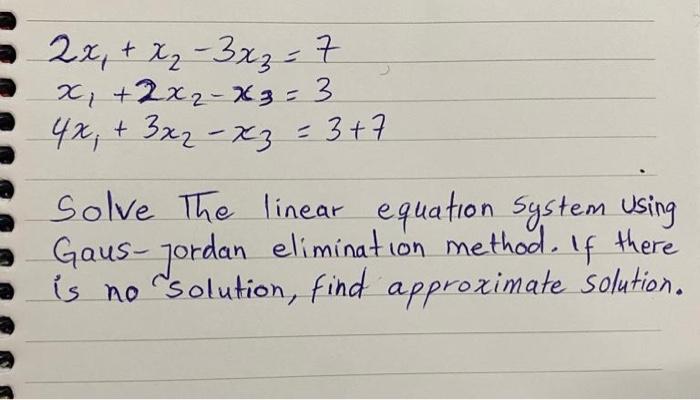 2x₁ + x₂ - 3x₃ = 7
x₁ + 2x₂ - x₃ = 3
4x₁ + 3x₂ - x₃ = 3+7
Solve The linear equation system using
Gaus-jordan elimination method. If there
is no solution, find approximate solution.